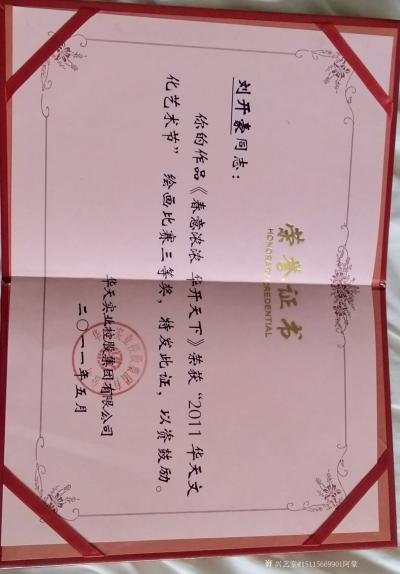 荣誉证书
HONORARY CREDENTIAL
刘开豪同志：
你的作品《春意浓浓 华开天下》荣获“2011华天文
化艺术节” 绘画比赛三等奖，特发此证，以资鼓励。
华天实业控股集团有限公司
二〇一一年五月